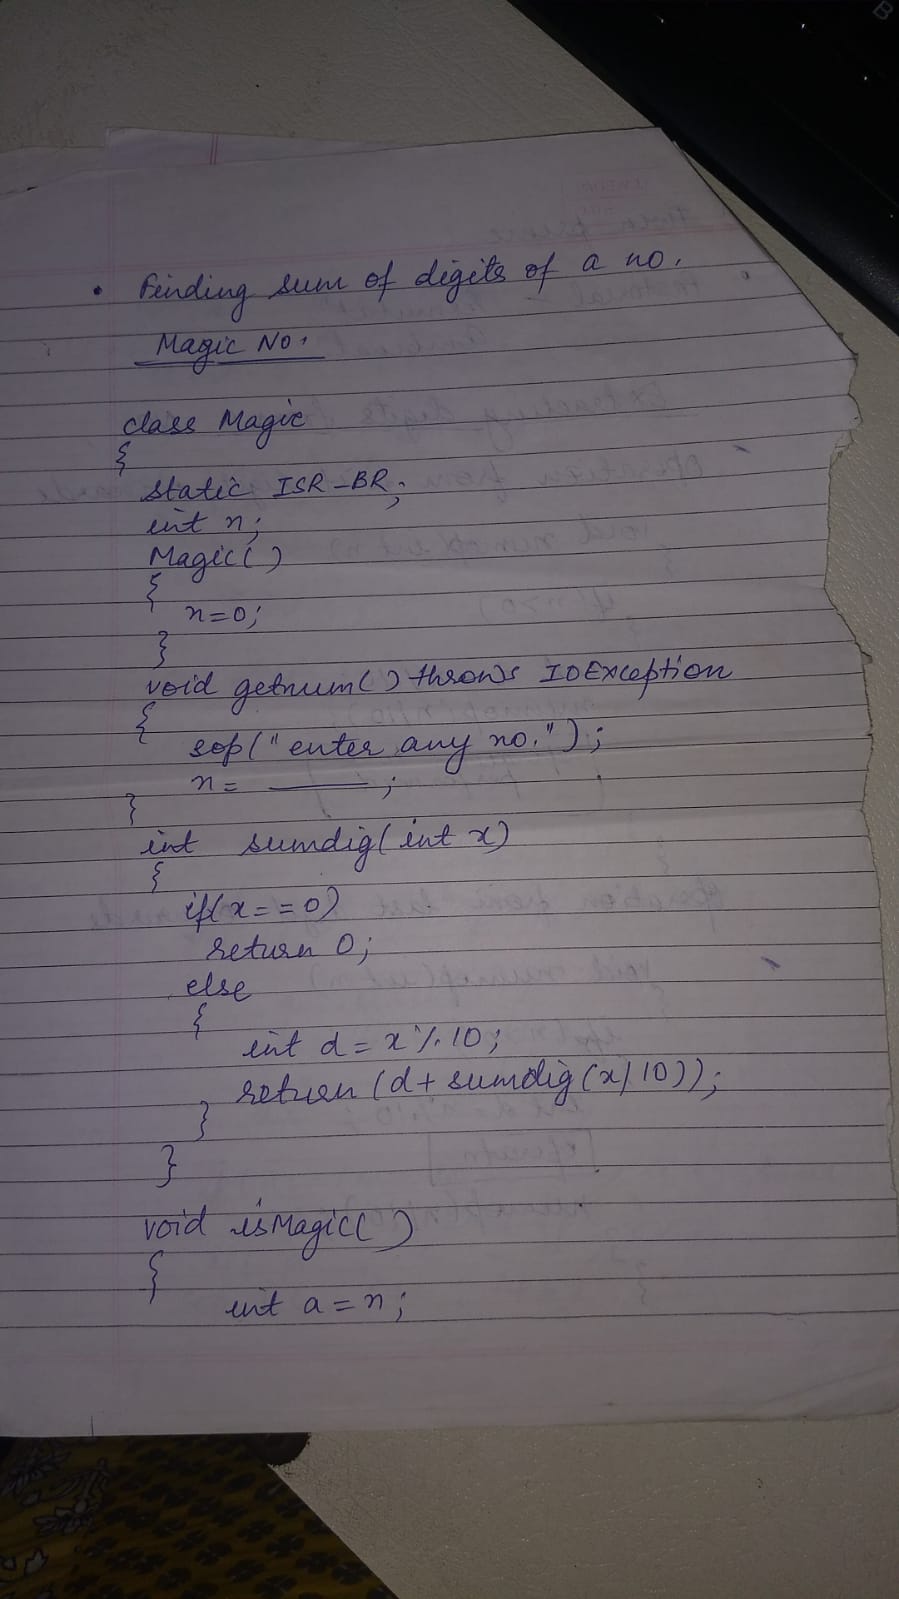 • Finding sum of digits of a no.
Magic No.
class Magic
{
static ISR-BR;
int n;
Magic()
{
n=0;
}
void getnum() throws IOException
{
sop("enter any no.");
n= ______;
}
int sumdig(int x)
{
if(x==0)
return 0;
else
{
int d = x%10;
return (d+ sumdig(x/10));
}
}
void isMagic()
{
int a=n;